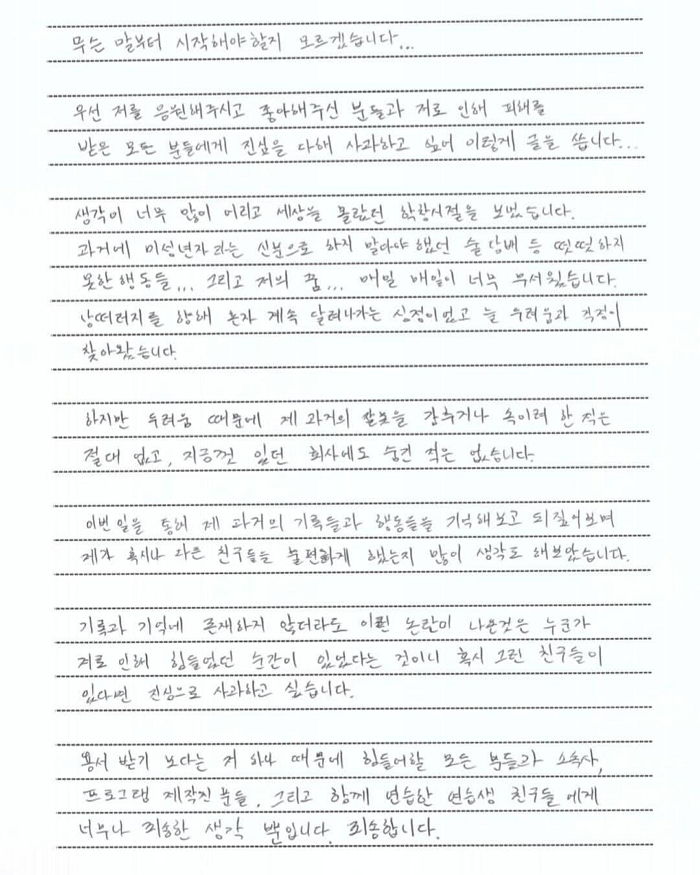 무슨 말부터 시작해야할지 모르겠습니다...
우선 저를 응원해주시고 좋아해주신 분들과 저로 인해 피해를
받은 모든 분들에게 진심을 다해 사과하고 싶어 이렇게 글을 씁니다...
생각이 너무 많이 어리고 세상을 몰랐던 학창시절을 보냈습니다.
과거에 미성년자라는 신분으로 하지 말아야 했던 술 담배 등 떳떳하지
못한 행동들... 그리고 저의 꿈... 매일 매일이 너무 무서웠습니다.
낭떠러지를 향해 혼자 계속 달려나가는 심정이었고 늘 두려움과 걱정이
찾아왔습니다.
하지만 두려움 때문에 제 과거의 잘못을 감추거나 속이려 한 적은
절대 없고, 지금껏 있던 회사에도 숨긴 적은 없습니다.
이번 일을 통해 제 과거의 기록들과 행동들을 기억해보고 되짚어보며
제가 혹시나 다른 친구들을 불편하게 했는지 많이 생각도 해보았습니다.
기록과 기억에 존재하지 않더라도 이런 논란이 나온것은 누군가
저로 인해 힘들었던 순간이 있었다는 것이니 혹시 그런 친구들이
있다면 진심으로 사과하고 싶습니다.
용서 받기 보다는 저 하나 때문에 힘들어할 모든 분들과 소속사,
프로그램 제작진 분들, 그리고 함께 연습한 연습생 친구들에게
너무나 죄송한 생각 뿐입니다. 죄송합니다.